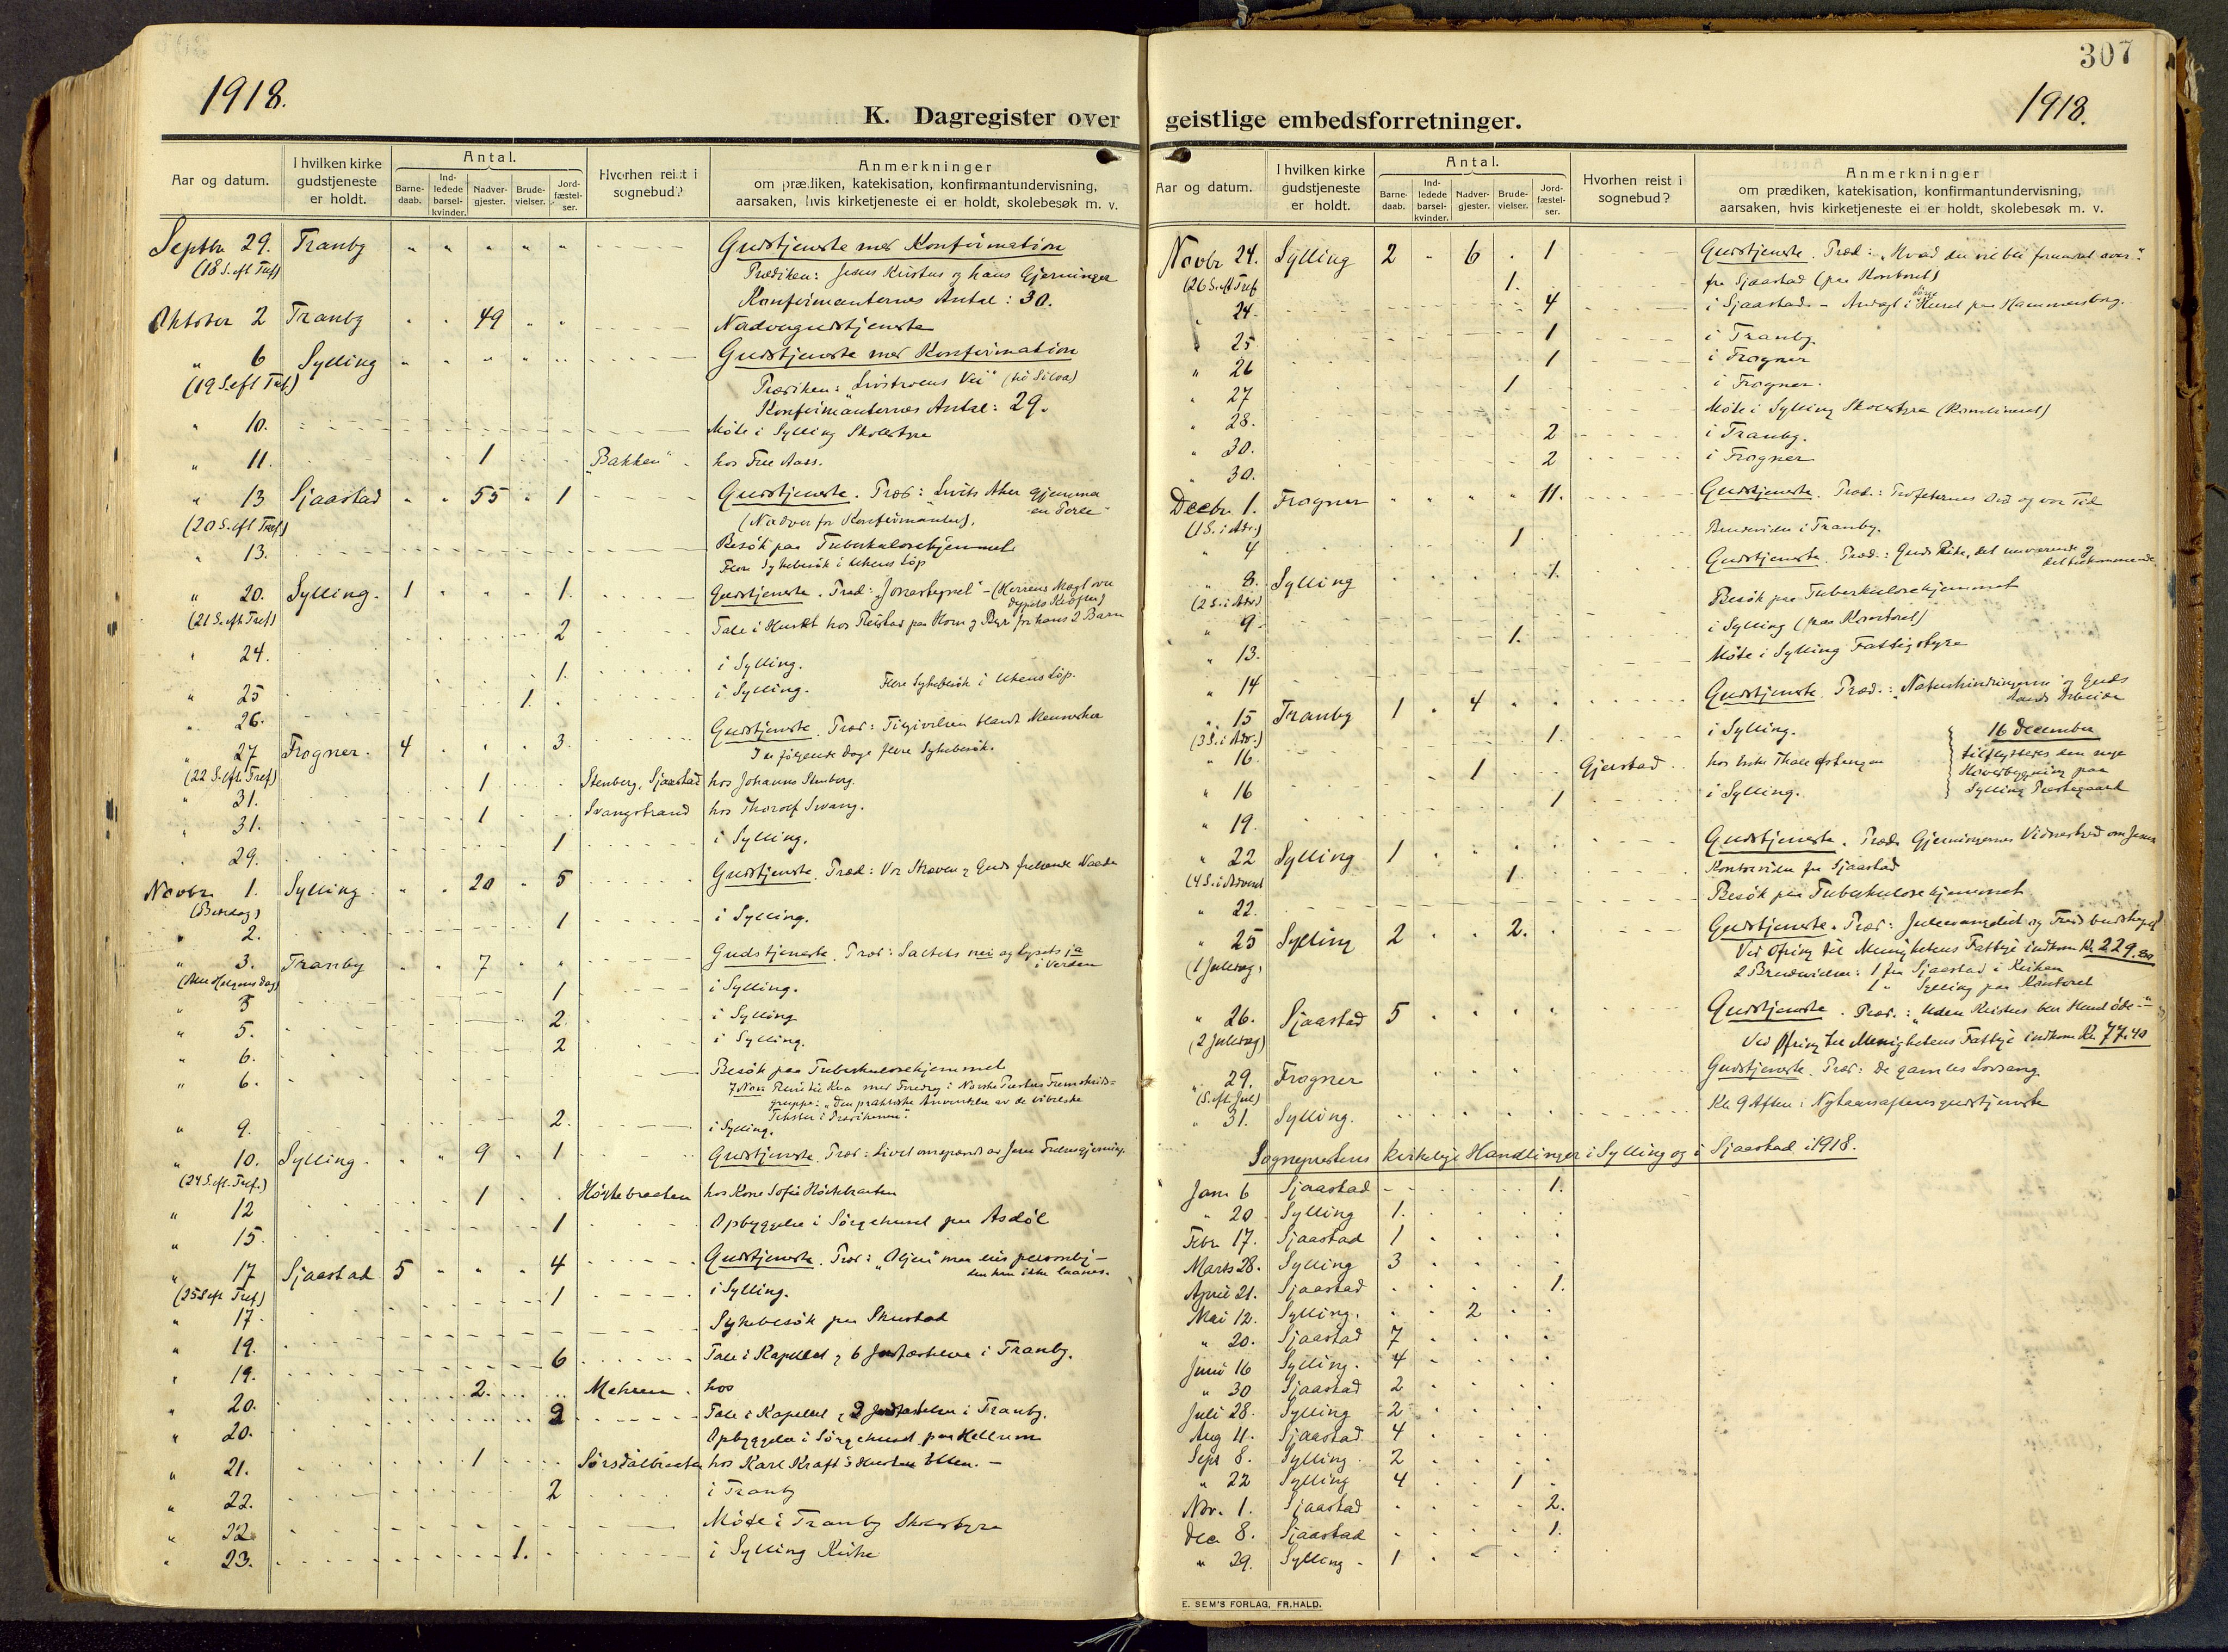 1918.
K. Dagregister over
Aar og datum.
I hvilken kirke gudstjeneste er holdt.
Antal.
Barne-daab.
Ind-ledede barsel-kvinder.
Nadver-gjester.
Brude-vielser.
Jord-fæstel-ser.
Hvorhen reist i sognebud?
Anmerkninger
om prædiken, katekisation, konfirmantundervisning,
aarsaken, hvis kirketjeneste ei er holdt, skolebesøk m. v.
Septbr 29. Tranby " " " " " Gudstjeneste med Konfirmation
(18 S. eft Tref) Prædiken: Jesus Kristus og hans Gjerninger
Konfirmanternes Antal: 30.
Oktober 2 Tranby 49 Nadvergudstjeneste
" 6 Sylling Gudstjeneste med Konfirmation
(19 S. eft Tref) Prædiken: "Livstroens Vei"
Konfirmanternes Antal: 29.
" 10. Möte i Sylling Skolestyre
" 11. 1 "Bakken" hos Fru Aass.
" 13 Sjaastad 55 1 Gudstjeneste. Præd: Livets Aker gjemmer
en Perle"
(20 S. eft Tref) (Nadver for Konfirmanter).
" 13. Besök paa Tuberkulosehjemmet
Flere Sykebesök i Ukens Löp
" 20. Sylling. 1 1. Gudstjeneste. Præd: "Jonastegnet" - (Herrens Magt over
dypets Kræfter)
(21 S. eft Tref) 2 Tale i Huset hos Reistad paa Horn og for hans 2 Barn
" 24. 1. i Sylling.
" 25 1. i Sylling. Flere Sykebesök i Ukens Löp.
" 26.
" 27 Frogner. 4 3. Gudstjeneste. Præd: Tilgivelsen blandt Mennesker
I de følgende Dage flere Sykebesök.
(22 S. eft Tref) 1 Stenberg, Sjaastad hos Johanne Stenberg.
" 31. 1 Svangstrand hos Thorolf Svang.
" 31. 1 i Sylling.
" 29.
Novbr. 1. Sylling 20 5 Gudstjeneste. Præd: Vor Kraven og Guds frelsende Naade
(Bededag) 1 i Sylling.
" 2.
" 3. Tranby 7 Gudstjeneste. Præd: Saltets nei og lysets ja
i Verden
(Alle Helgens dag) 1 i Sylling.
" 5 2. i Sylling
" 5. 2 i Sylling.
" 6. Besök paa Tuberkulosehjemmet
" 6. 7 Nov: Reise til Kra med Foredrag i Norske Presters Fremskridts=
gruppe: "Den praktiske Anvendelse av de bibelske
Tekster i Prædikenen".
" 9. 2. i Sylling.
" 10. Sylling. 9 1 Gudstjeneste. Præd: Livet omspændt av Jesu Frelsesgjerning.
(24 S. eft. Tref.) 1 Höytebraaten hos Kone Sofie Höitebraaten
" 12 1 Opbyggelse i Sörgehuset paa Asdöl
" 15.
" 17 Sjaastad 5 4 Gudstjeneste. Præd: "Oljen" maa eies personlig -
den kan ikke laanes.
(25 S eft Tref) 1 i Sylling.
" 17. Sykebesök paa Skustad
" 19. 6 Tale i Kapellet og 6 Jordfæstelser i Tranby.
" 19. 2. Mehren hos
" 20. 2 Tale i Kapellet, 2 Jordfæstelser i Tranby.
" 20. Opbyggelse i Sörgehuset paa Hellum
" 21. 1 Sörsdalbraaten hos Karl Kraft's Hustru Ellen. -
" 22. 2 i Tranby
" 22 Möte i Tranby Skolestyre
" 23. 1. i Sylling Kirke
307
1918.
geistlige embedsforretninger.
Aar og datum.
I hvilken kirke gudstjeneste er holdt.
Antal.
Barne-daab.
Ind-ledede barsel-kvinder.
Nadver-gjester.
Brude-vielser.
Jord-fæstel-ser.
Hvorhen reist i sognebud?
Anmerkninger
om prædiken, katekisation, konfirmantundervisning,
aarsaken, hvis kirketjeneste ei er holdt, skolebesøk m. v.
Novbr 24. Sylling 2 6 1 Gudstjeneste. Præd: "Hvad du vil bli forundret over".
(26 S. eft Tref 1. fra Sjaastad (paa Kontoret)
" 24. 4 i Sjaastad. - Andagt i Sörgehuset paa Hammersborg.
" 25 1 i Tranby.
" 26 1 i Frogner
" 27 1 i Frogner.
" 28. Möte i Sylling Skolestyre (Kombineret)
" 30. 2 i Tranby.
" 30. 2 i Frogner
Decbr. 1. Frogner 11. Gudstjeneste. Præd.: Profeternes Ord og vor Tid
(1 S. i Adv.)
" 4 1 Brudevielse i Tranby.
" 8. Sylling 1. Gudstjeneste. Præd.: Guds Rike, det nuværende og
det tilkommende.
(2 S. i Adv) Besök paa Tuberkulosehjemmet
" 9. 1. i Sylling (paa Kontoret)
" 13. Möte i Sylling Fattigstyre
" 14
" 15 Tranby 1 4 Gudstjeneste. Præd.: "Naturhindringerne" og Guds
Rikes Arbeide
(3 S. i Adv.) 1. i Sylling.
16 December
tilflyttedes den nye
Hovedbygning paa
Sylling Prestegaard
" 16. 1 Gjerstad hos Enke Thale Østengen
" 16 1 i Sylling.
" 19.
" 22 Sylling 1 Gudstjeneste. Præd. Gjerningernes Vidnesbyrd om Jesus
(4 S. i Advent 1. Kontorvielse fra Sjaastad
" 22. Besök paa Tuberkulosehjemmet
" 25 Sylling 2 2. Gudstjeneste. Præd: Juleevangeliet og Fredsbudskapet
(1 Juledag) Ved Ofring til Menighetens Fattige indkom Kr. 229.00
2 Brudevielser: 1 fra Sjaastad i Kirken
1 " Sylling paa Kontoret
" 26. Sjaastad 5 Gudstjeneste. Præd.: "Uden Kristus blir Huset öde -"
(2 Juledag) Ved Ofring til Menighetens Fattige indkom Kr. 77.40
" 29. Frogner Gudstjeneste. Præd: De gamles Lovsang.
(S. eft Jul)
" 31. Sylling. Kl. 9 Aften: Nytaarsaftensgudstjeneste
Sogneprestens kirkelige Handlinger i Sylling og i Sjaastad i 1918.
Jan. 6 Sjaastad 1.
" 20 Sylling 1.
Febr. 17. Sjaastad 1
Marts 28. Sylling 3
April 21. Sjaastad 1.
Mai 12. Sylling. 2
" 20. Sjaastad 7
Juni 16 Sylling. 4
" 30 Sjaastad 2
Juli 28. Sylling 2
Aug 11. Sjaastad 4
Sept 8. Sylling. 2
" 22 Sylling 4 1
Nov. 1. Sjaastad 2.
Dec. 8. Sjaastad 1.
" 29. Sylling - 1
E. SEM'S FORLAG, FR.HALD.